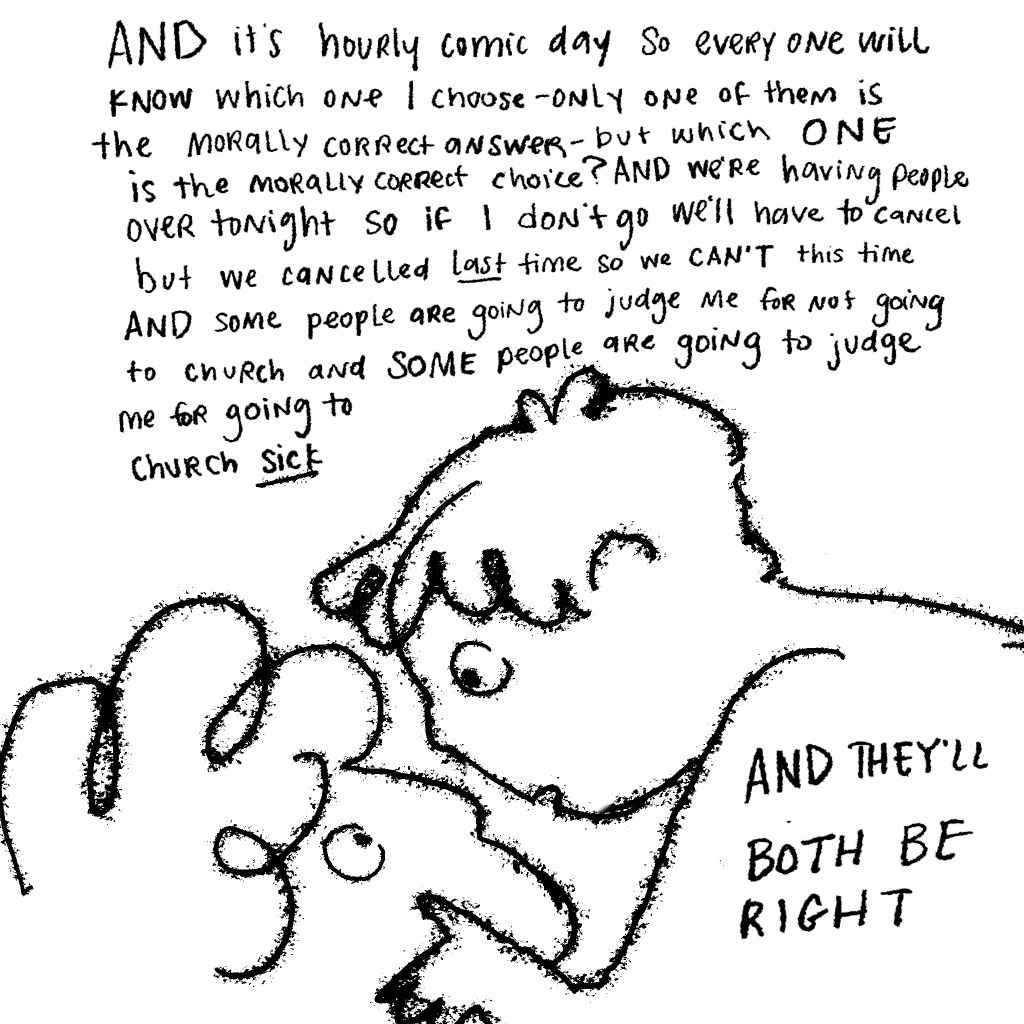 AND it's hourly comic day so everyone will
KNOW which one I choose - only one of them is
the MORALLY CORRect ANSWER - but which ONE
is the MORALLY CORRect choice? AND we're having people
OVER tonight so if I don't go we'll have to cancel
but we cancelled last time so we CAN'T this time
AND some people are going to judge me for not going
to church and SOME people are going to judge
me for going to
church sick
AND THEY'LL
BOTH BE
RIGHT